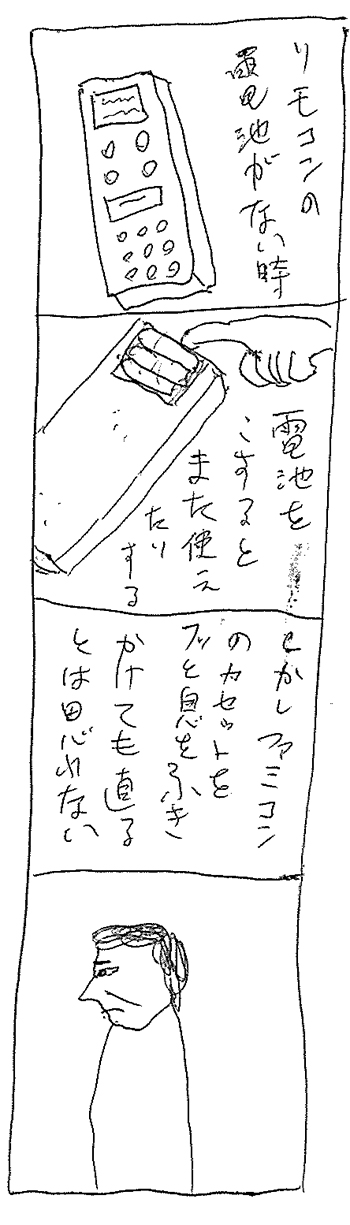 リモコンの
電池がない時
電池を
こすると
また使え
たり
する
しかしファミコン
のカセットを
フッと息をふき
かけても直る
とは思れない